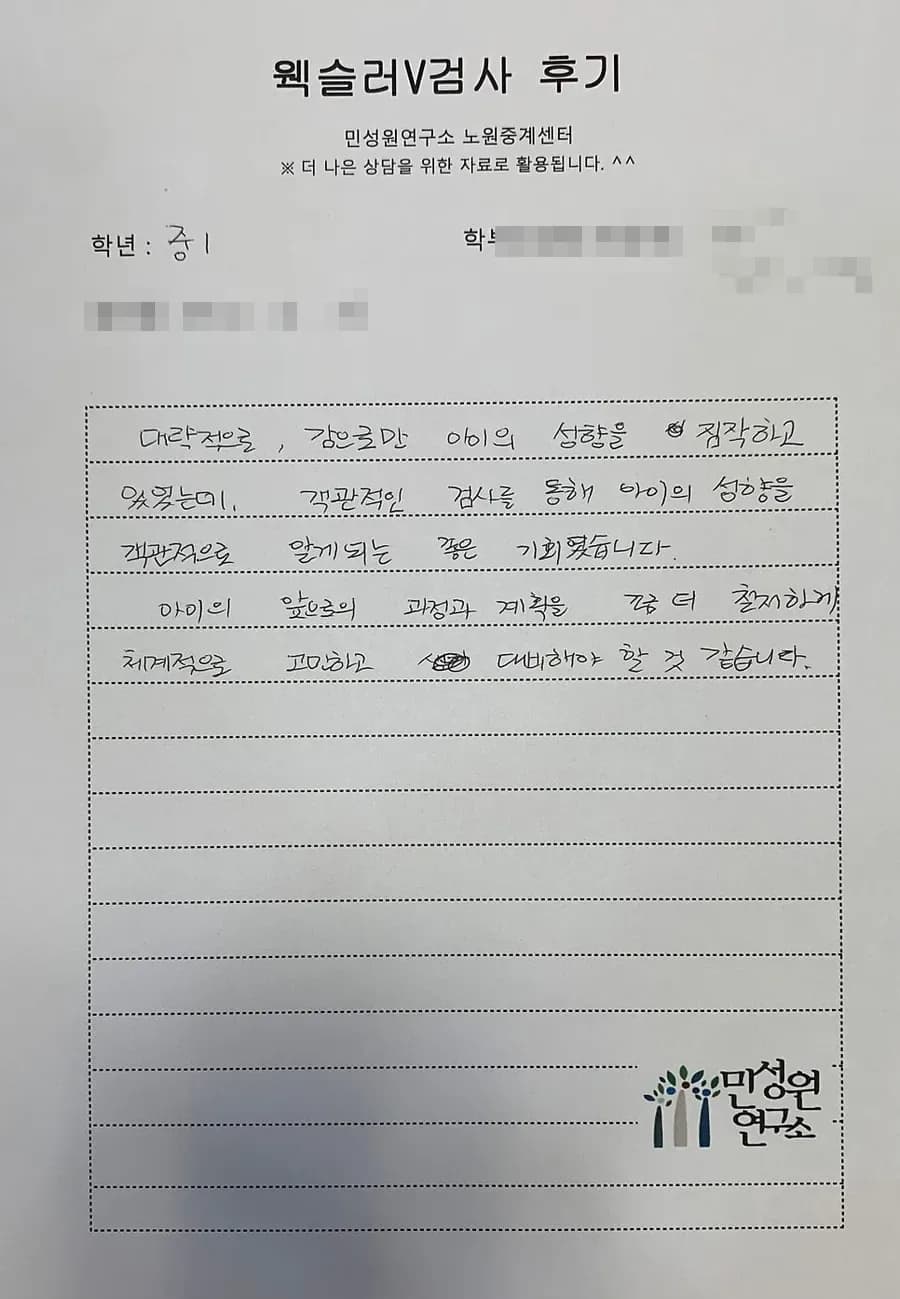 웩슬러V검사 후기
민성원연구소 노원중계센터
※ 더 나은 상담을 위한 자료로 활용됩니다. ^^
학년 : 중1
학부
대략적으로, 감으로만 아이의 성향을 짐작하고
있었는데, 객관적인 검사를 통해 아이의 성향을
객관적으로 알게되는 좋은 기회였습니다.
아이의 앞으로의 과정과 계획을 조금 더 철저하게
체계적으로 고민하고 대비해야 할 것 같습니다.
민성원
연구소